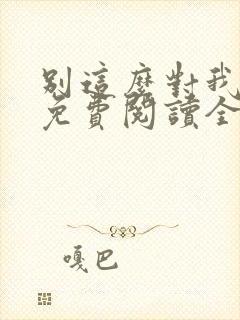 別這麼對我
免費閱讀全
嘎巴